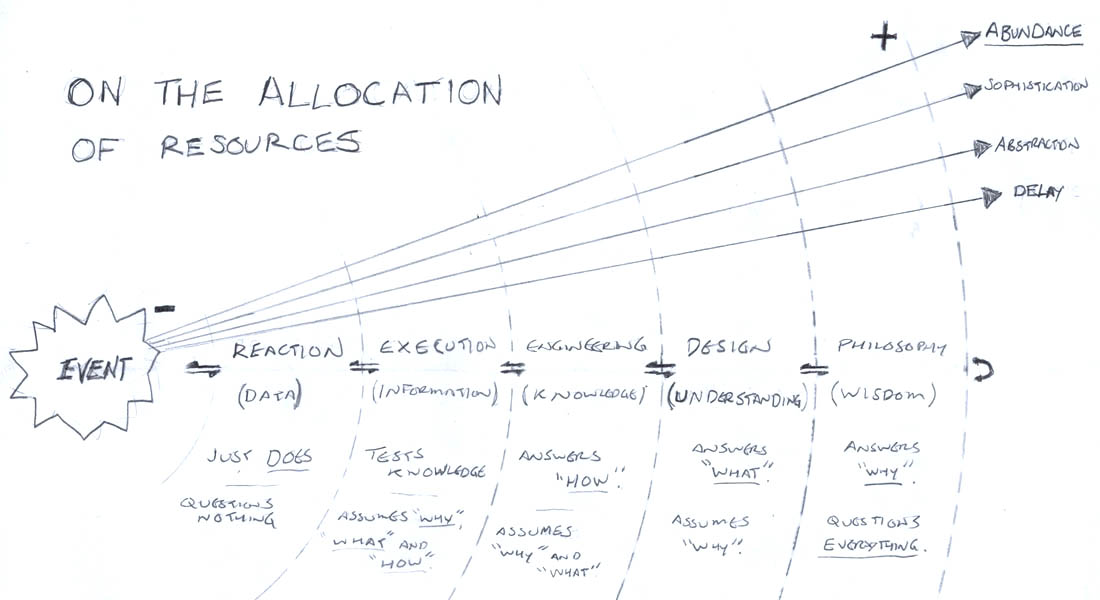 ON THE ALLOCATION
OF RESOURCES
+
ABUNDANCE
SOPHISTICATION
ABSTRACTION
DELAY
-
EVENT
REACTION
(DATA)
JUST DOES
QUESTIONS
NOTHING
EXECUTION
(INFORMATION)
TESTS
KNOWLEDGE
ASSUMES "WHY",
"WHAT" AND
"HOW".
ENGINEERING
(KNOWLEDGE)
ANSWERS
"HOW".
ASSUMES
"WHY" AND
"WHAT".
DESIGN
(UNDERSTANDING)
ANSWERS
"WHAT".
ASSUMES
"WHY".
PHILOSOPHY
(WISDOM)
ANSWERS
"WHY".
QUESTIONS
EVERYTHING.